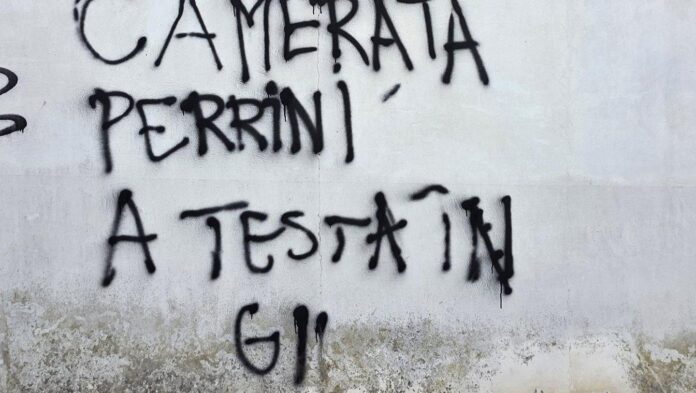 CAMERATA
PERRINI
A TESTA IN
GIÙ